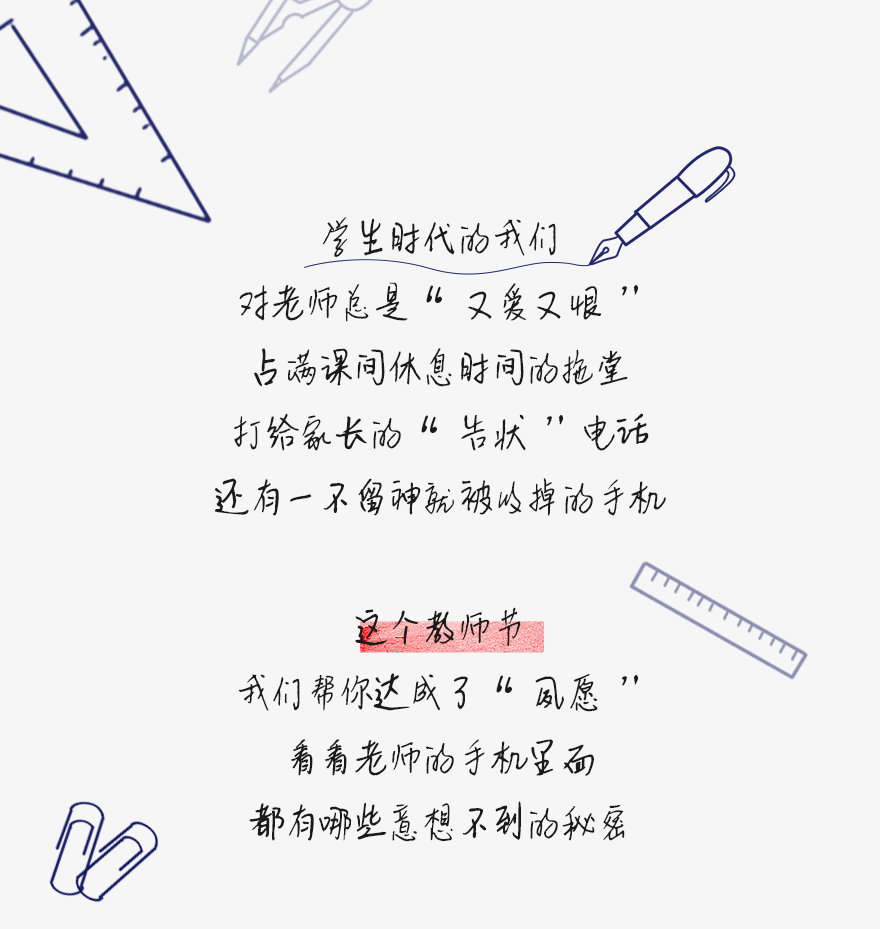 学生时代的我们
对老师总是“又爱又恨”
占满课间休息时间的拖堂
打给家长的“告状”电话
还有一不留神就被收掉的手机
这个教师节
我们帮你达成了“夙愿”
看看老师的手机里面
都有哪些意想不到的秘密